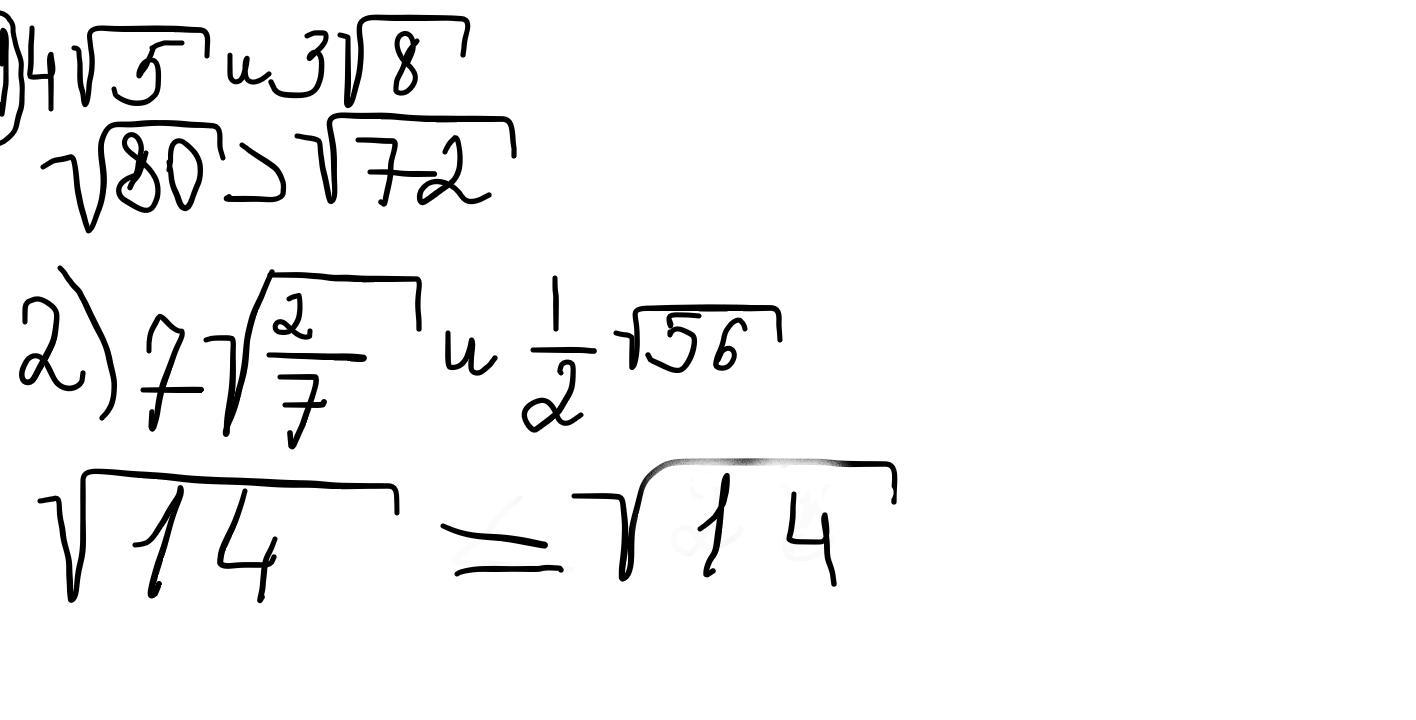 1) 4√5 и 3√8
√80 > √72
2) 7√(2/7) и 1/2 √56
√14 = √14